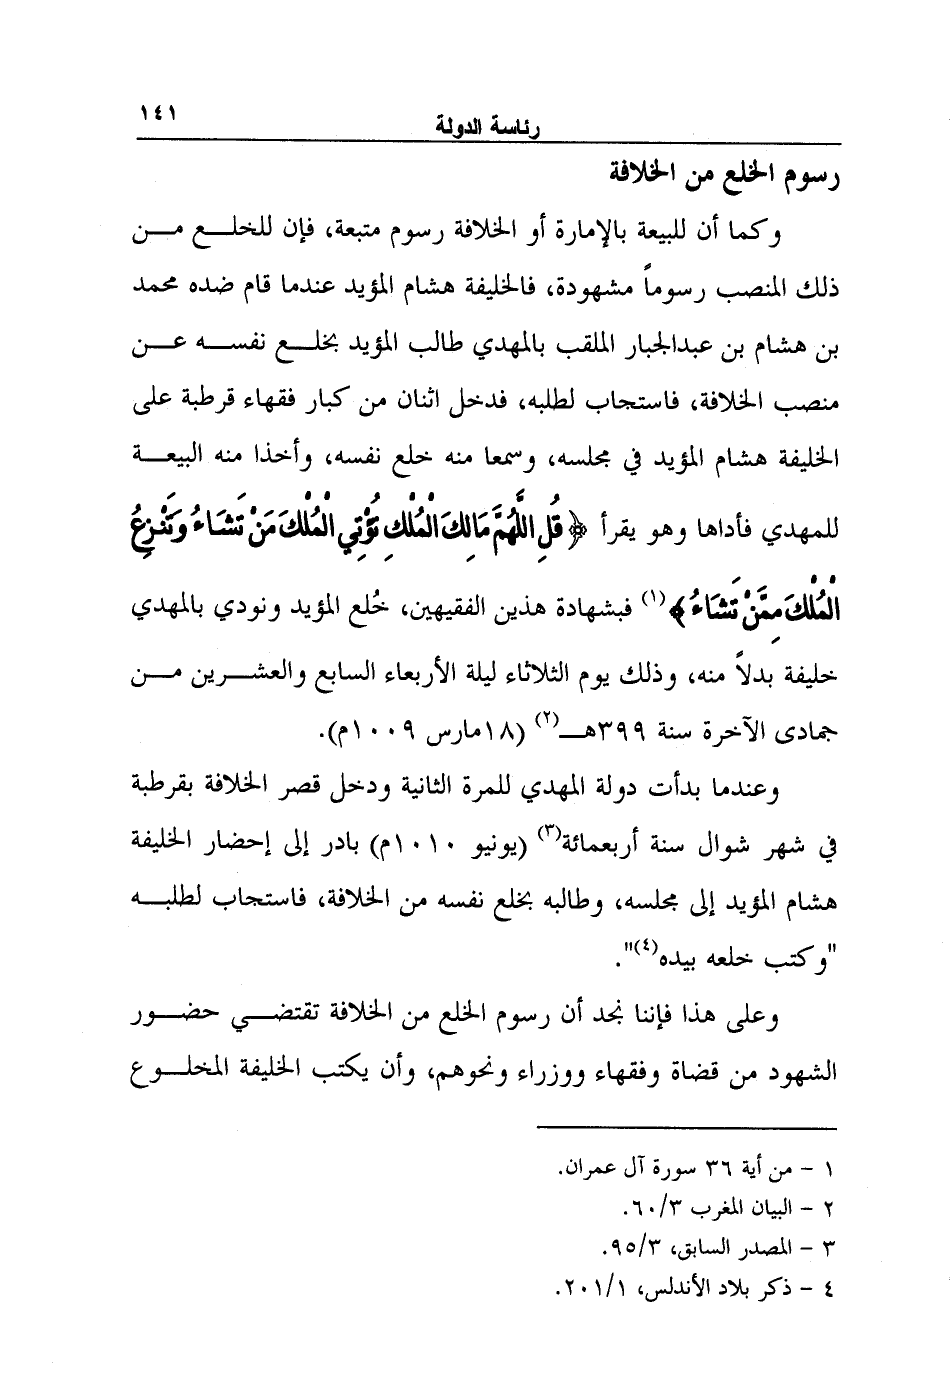 ١٤١
رئاسة الدولة
رسوم الخلع من الخلافة
وكما أن للبيعة بالإمارة أو الخلافة رسوم متبعة، فإن للخلـــع مـــن
ذلك المنصب رسوماً مشهودة، فالخليفة هشام المؤيد عندما قام ضده محمد
بن هشام بن عبدالجبار الملقب بالمهدي طالب المؤيد بخلـــع نفســـه عـــن
منصب الخلافة، فاستجاب لطلبه، فدخل اثنان من كبار فقهاء قرطبة على
الخليفة هشام المؤيد في مجلسه، وسمعا منه خلع نفسه، وأخذا منه البيعـــة
للمهدي فأداها وهو يقرأ ﴿قُلِ اللَّهُمَّ مَالِكَ الْمُلْكِ تُؤْتِي الْمُلْكَ مَنْ تَشَاءُ وَتَنْزِعُ
الْمُلْكَ مِمَّنْ تَشَاءُ﴾(١) فبشهادة هذين الفقيهين، خُلع المؤيد ونودي بالمهدي
خليفة بدلاً منه، وذلك يوم الثلاثاء ليلة الأربعاء السابع والعشـــرين مـــن
جمادى الآخرة سنة ٣٩٩هـــ(٢) (١٨مارس ١٠٠٩م).
وعندما بدأت دولة المهدي للمرة الثانية ودخل قصر الخلافة بقرطبة
في شهر شوال سنة أربعمائة(٣) (يونيو ١٠١٠م) بادر إلى إحضار الخليفة
هشام المؤيد إلى مجلسه، وطالبه بخلع نفسه من الخلافة، فاستجاب لطلبـــه
"وكتب خلعه بيده(٤)".
وعلى هذا فإننا نجد أن رسوم الخلع من الخلافة تقتضـــي حضـــور
الشهود من قضاة وفقهاء ووزراء ونحوهم، وأن يكتب الخليفة المخلـــوع
١ - من أية ٣٦ سورة آل عمران.
٢ - البيان المغرب ٦٠/٣.
٣ - المصدر السابق، ٩٥/٣.
٤ - ذكر بلاد الأندلس، ٢٠١/١.